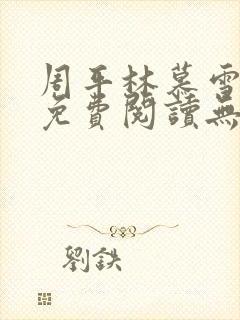 周平林慕雪
免費閱讀無
劉鉄